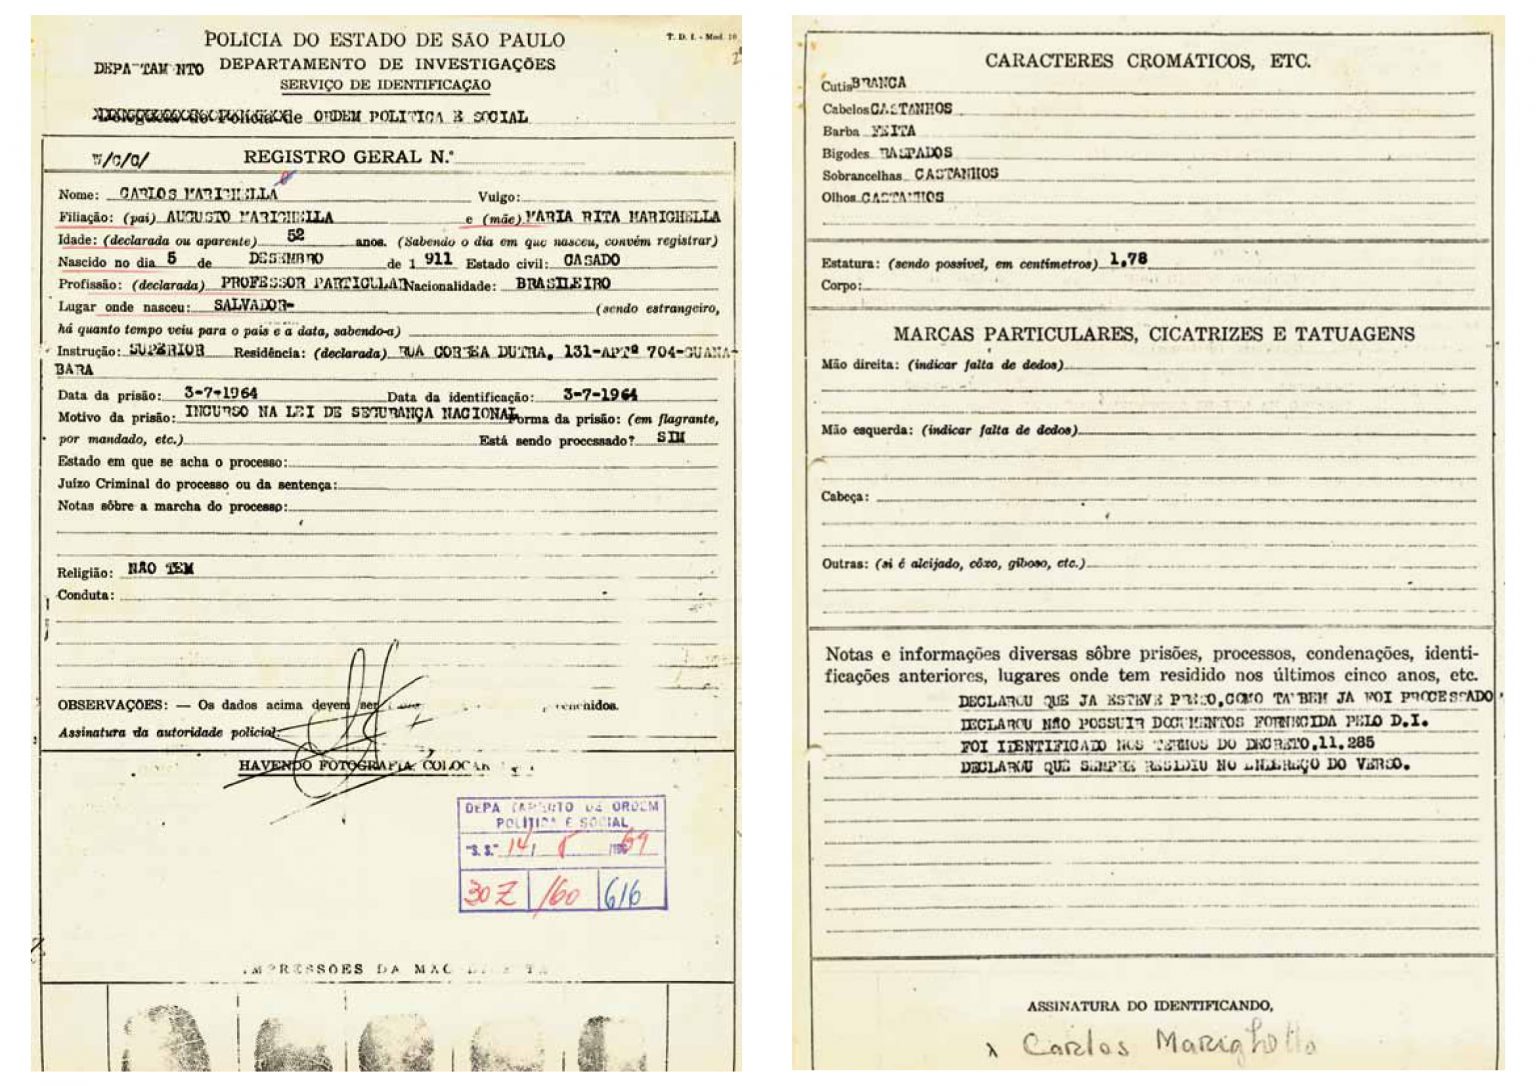 POLICIA DO ESTADO DE SÃO PAULO
T. D. I. - Mod. 10
DEPA TAM NTO DEPARTAMENTO DE INVESTIGAÇÕES
SERVIÇO DE IDENTIFICAÇÃO
de ORDEM POLITICA E SOCIAL
REGISTRO GERAL N.º
Nome: CARLOS MARIGHELLA Vulgo:
Filiação: (pai) AUGUSTO MARIGHELLA e (mãe) MARIA RITA MARIGHELLA
Idade: (declarada ou aparente) 52 anos. (Sabendo o dia em que nasceu, convém registrar)
Nascido no dia 5 de DESEMBRO de 1 911 Estado civil: CASADO
Profissão: (declarada) PROFESSOR PARTICULAR Nacionalidade: BRASILEIRO
Lugar onde nasceu: SALVADOR- (sendo estrangeiro,
há quanto tempo veiu para o país e a data, sabendo-a)
Instrução: SUPERIOR Residência: (declarada) RUA CORREA DUTRA, 131-APTº 704-GUANA-
BARA
Data da prisão: 3-7-1964 Data da identificação: 3-7-1964
Motivo da prisão: INCURSO NA LEI DE SEGURANÇA NACIONAL Forma da prisão: (em flagrante,
por mandado, etc.) Está sendo processado? SIM
Estado em que se acha o processo:
Juízo Criminal do processo ou da sentença:
Notas sôbre a marcha do processo:
Religião: NÃO TEM
Conduta:
OBSERVAÇÕES: — Os dados acima devem ser
Assinatura da autoridade policial:
HAVENDO FOTOGRAFIA, COLOCAR
DEPARTAMENTO DE ORDEM
POLÍTICA E SOCIAL
"S. S." 14 / 8 /1969
30Z /60 616
IMPRESSÕES DA MÃO DIREITA
CARACTERES CROMÁTICOS, ETC.
Cutis BRANCA
Cabelos CASTANHOS
Barba FEITA
Bigodes RASPADOS
Sobrancelhas CASTANHOS
Olhos CASTANHOS
Estatura: (sendo possível, em centímetros) 1,78
Corpo:
MARCAS PARTICULARES, CICATRIZES E TATUAGENS
Mão direita: (indicar falta de dedos)
Mão esquerda: (indicar falta de dedos)
Cabeça:
Outras: (si é aleijado, côxo, giboso, etc.)
Notas e informações diversas sôbre prisões, processos, condenações, identi-
ficações anteriores, lugares onde tem residido nos últimos cinco anos, etc.
DECLAROU QUE JA ESTEVE PRESO, COMO TAMBEM JA FOI PROCESSADO
DECLAROU NÃO POSSUIR DOCUMENTOS FORNECIDA PELO D.I.
FOI IDENTIFICADO NOS TERMOS DO DECRETO, 11.285
DECLAROU QUE SEMPRE RESIDIU NO ENDEREÇO DO VERSO.
ASSINATURA DO IDENTIFICANDO,
x Carlos Marighella